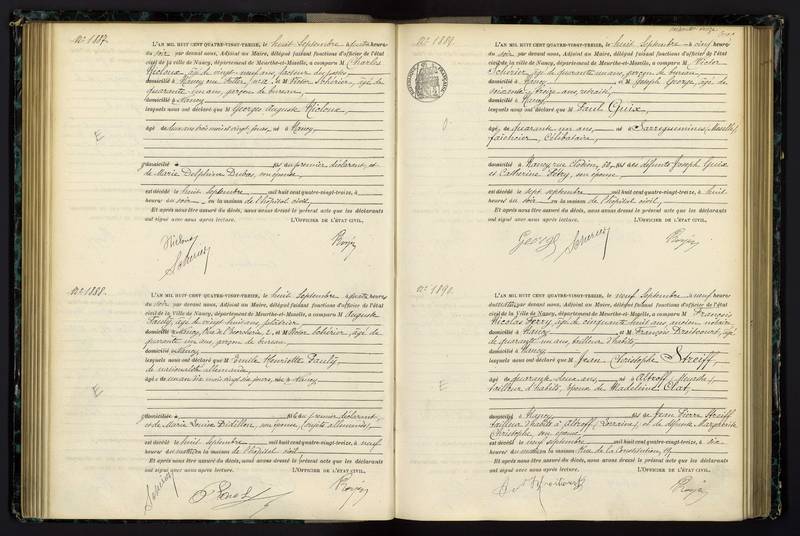 N° 1887.
L'AN MIL HUIT CENT QUATRE-VINGT-TREIZE, le huit Septembre à quatre heures
du soir par devant nous, Adjoint au Maire, délégué faisant fonctions d'officier de l'état
civil de la Ville de Nancy, département de Meurthe-et-Moselle, a comparu M Charles
Nicloux, âgé de vingt-neuf ans, facteur des postes,
domicilié à Nancy et M Victor Schérier, âgé de
quarante un ans, garçon de bureau,
domicilié à Nancy
lesquels nous ont déclaré que M Georges Auguste Nicloux,
E
âgé de deux ans trois mois vingt jours, né à Nancy,
domicilié à fils au premier déclarant, et
de Marie Delphine Dubas, son épouse,
est décédé le huit Septembre mil huit cent quatre-vingt-treize, à
heures du soir en la maison de l'hôpital civil,
Et après nous être assuré du décès, nous avons dressé le présent acte que les déclarants
ont signé avec nous après lecture. L'OFFICIER DE L'ÉTAT CIVIL,
Nicloux
Scherier
N° 1888.
L'AN MIL HUIT CENT QUATRE-VINGT-TREIZE, le huit Septembre à quatre heures
du soir par devant nous, Adjoint au Maire, délégué faisant fonctions d'officier de l'état
civil de la Ville de Nancy, département de Meurthe-et-Moselle, a comparu M Auguste
Pauly, âgé de vingt huit ans,
domicilié à Nancy, et M Victor Schérier, âgé de
quarante un ans, garçon de bureau,
domicilié à Nancy
lesquels nous ont déclaré que M Emile Henriette Pauly,
de nationalité allemande,
E
âgé de un an six mois vingt six jours, née à Nancy,
domicilié à fille au premier déclarant,
et de Marie Louise Didillon, son épouse, (sujets allemands),
est décédé le huit Septembre mil huit cent quatre-vingt-treize, à neuf
heures du matin en la maison de l'hôpital civil
Et après nous être assuré du décès, nous avons dressé le présent acte que les déclarants
ont signé avec nous après lecture. L'OFFICIER DE L'ÉTAT CIVIL,
Scherier
N° 1889.
L'AN MIL HUIT CENT QUATRE-VINGT-TREIZE, le huit Septembre à cinq heures
du soir par devant nous, Adjoint au Maire, délégué faisant fonctions d'officier de l'état
civil de la Ville de Nancy, département de Meurthe-et-Moselle, a comparu M Victor
Schérier, âgé de quarante un ans, garçon de bureau,
domicilié à Nancy et M Joseph George, âgé de
soixante treize ans, retraité,
domicilié à Nancy
lesquels nous ont déclaré que M Paul Guix,
âgé de quarante un ans, né à Sarreguemines (Moselle)
faïencier, Célibataire,
domicilié à Nancy rue Clodion, 50, fils des défunts Joseph Guix
et Catherine Fétry, son épouse,
est décédé le sept septembre mil huit cent quatre-vingt-treize, à huit
heures du soir en la maison de l'hôpital civil,
Et après nous être assuré du décès, nous avons dressé le présent acte que les déclarants
ont signé avec nous après lecture. L'OFFICIER DE L'ÉTAT CIVIL,
George Scherier
N° 1890.
L'AN MIL HUIT CENT QUATRE-VINGT-TREIZE, le neuf Septembre à neuf heures
du matin par devant nous, Adjoint au Maire, délégué faisant fonctions d'officier de l'état
civil de la Ville de Nancy, département de Meurthe-et-Moselle, a comparu M François
Nicolas Ferry, âgé de cinquante huit ans, ancien notaire
domicilié à Nancy et M François Droitcourt, âgé
de quarante ans, tailleur d'habits,
domicilié à Nancy
lesquels nous ont déclaré que M Jean Christophe Streiff,
E
âgé de quarante deux ans, né à Altroff (Meurthe),
tailleur d'habits, époux de Madeleine Clat,
domicilié à Nancy, fils de Jean Pierre Streiff
tailleur d'habits à Altroff (Lorraine), et de défunte Marguerite
Christophe, son épouse,
est décédé le neuf septembre mil huit cent quatre-vingt-treize, à six
heures du matin en la maison Rue de la Constitution, 9,
Et après nous être assuré du décès, nous avons dressé le présent acte que les déclarants
ont signé avec nous après lecture. L'OFFICIER DE L'ÉTAT CIVIL,